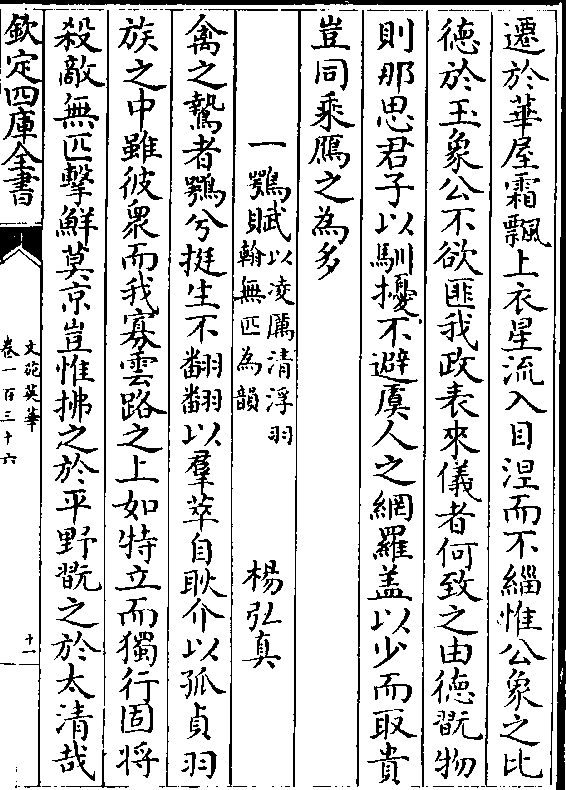 遷於華屋霜飄上衣星流入目涅而不緇惟公象之比
徳於玉象公不欲匪我政表來儀者何致之由徳翫物
則那思君子以馴擾不避虞人之網羅盖以少而取貴
豈同乘鴈之為多
一鶚賦以凌厲清浮羽
翰無匹為韻
楊弘真
禽之鷙者鶚兮挺生不翩翻以羣萃自耿介以孤貞羽
族之中雖彼衆而我寡雲路之上如特立而獨行固将
殺敵無匹擊鮮莫京豈惟拂之於平野翫之於太清哉
欽定四庫全書
文苑英華
卷一百三十六
十一